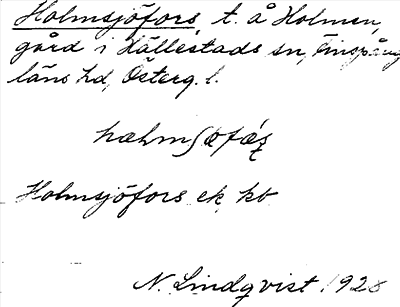 Holmsjöfors, t. å Holmen,
gård i Hällestads sn, Finspång
läns hd, Österg. l.
Holmsjöfors ek, kb
N. Lindqvist 1928